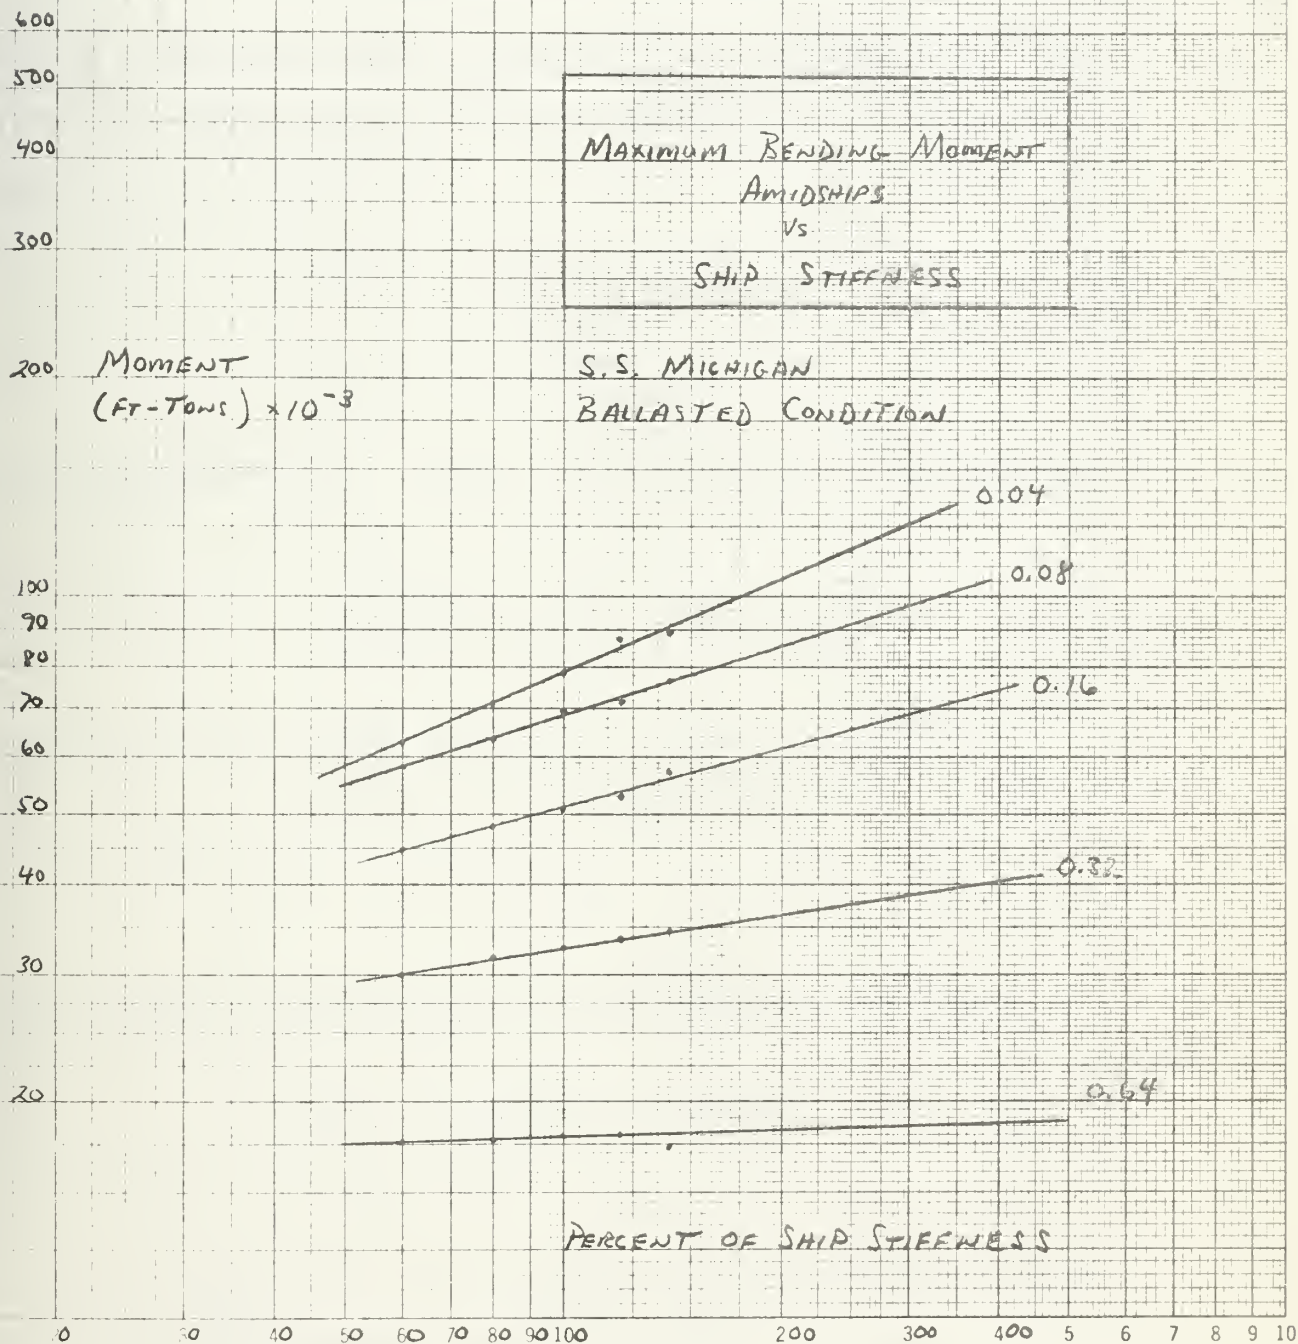 600
500
400
300
200
100
90
80
70
60
50
40
30
20
MAXIMUM BENDING MOMENT
AMIDSHIPS
VS
SHIP STIFFNESS
MOMENT
(FT-TONS) x 10⁻³
S.S. MICHIGAN
BALLASTED CONDITION
0.04
0.08
0.16
0.32
0.64
PERCENT OF SHIP STIFFNESS
40 50 60 70 80 90 100 200 300 400 5 6 7 8 9 10